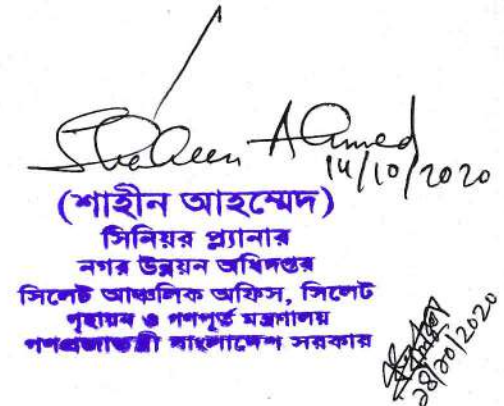 Shaheen Ahmed
14/10/2020
(শাহীন আহম্মেদ)
সিনিয়র প্ল্যানার
নগর উন্নয়ন অধিদপ্তর
সিলেট আঞ্চলিক অফিস, সিলেট
গৃহায়ন ও গণপূর্ত মন্ত্রণালয়
গণপ্রজাতন্ত্রী বাংলাদেশ সরকার